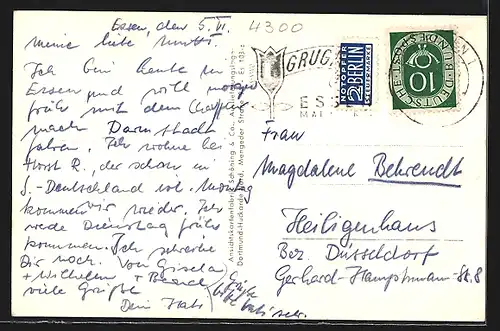 Essen, den 5. VI.
4300
Meine liebe Mutti.
Ich bin heute in
Essen und will morgen
früh mit dem Chef
nach Darmstadt
fahren. Ich wohne bei
Horst R., der schon in
S.-Deutschland ist. Montag
kommen wir wieder. Ich
werde Dienstag früh
kommen. Ich schreibe
Dir noch. Von Gisela
+ Wilhelm + Bernd
viele Grüße
Dein Hans
Grüße
Ansichtskartenfabrik Schöning & Co.
Dortmund-Huckarde, Mengeder Str.
GRUGA
ESSEN
NOTOPFER
2 BERLIN
STEUERMARKE
DEUTSCHE BUNDESPOST
10
Frau
Magdalene Behrendt
Heiligenhaus
Bez. Düsseldorf
Gerhard-Hauptmann-St. 8